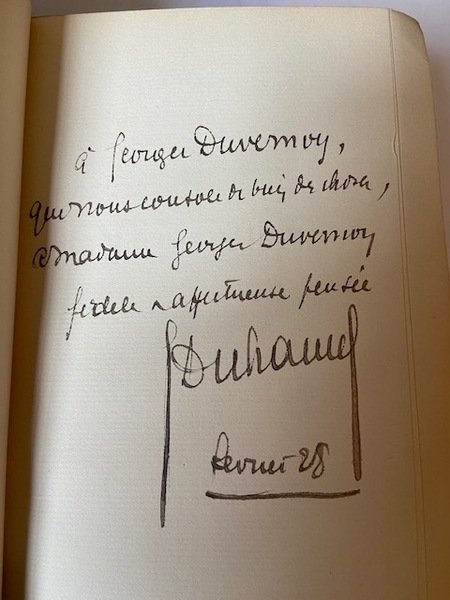 à Georges Duvernoy,
qui nous console de bien des choses,
à Madame Georges Duvernoy
fidèle & affectueuse pensée
GDuhamel
février 28